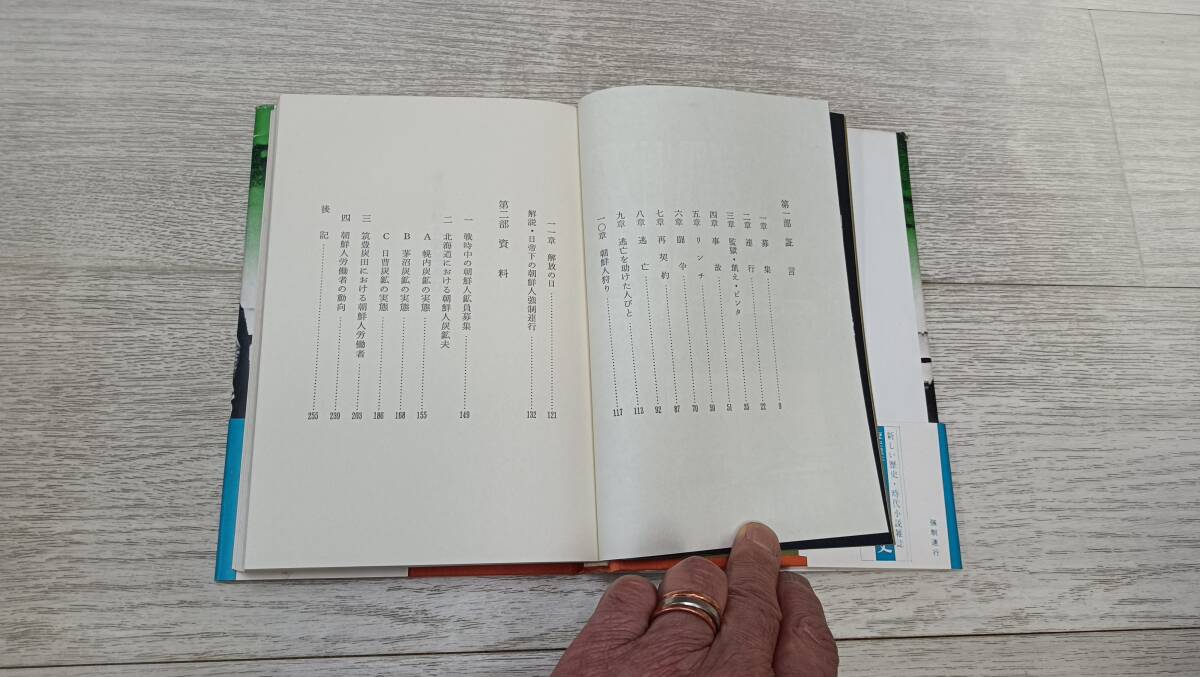 第一部 証言
一章 募集………9
二章 連行………22
三章 監獄・飢え・ビンタ………35
四章 事故………51
五章 リンチ………59
六章 闘争………70
七章 再契約………87
八章 逃亡………92
九章 逃亡を助けた人びと………113
一〇章 朝鮮人狩り………117
一一章 解放の日………121
解説・日帝下の朝鮮人強制連行………132
第二部 資料
一 戦時中の朝鮮人鉱員募集………149
二 北海道における朝鮮人炭鉱夫
A 幌内炭鉱の実態………155
B 茅沼炭鉱の実態………168
C 日曹炭鉱の実態………186
三 筑豊炭田における朝鮮人労働者………203
四 朝鮮人労働者の動向………239
後記………255
新しい歴史・時代小説雑誌
史
強制連行